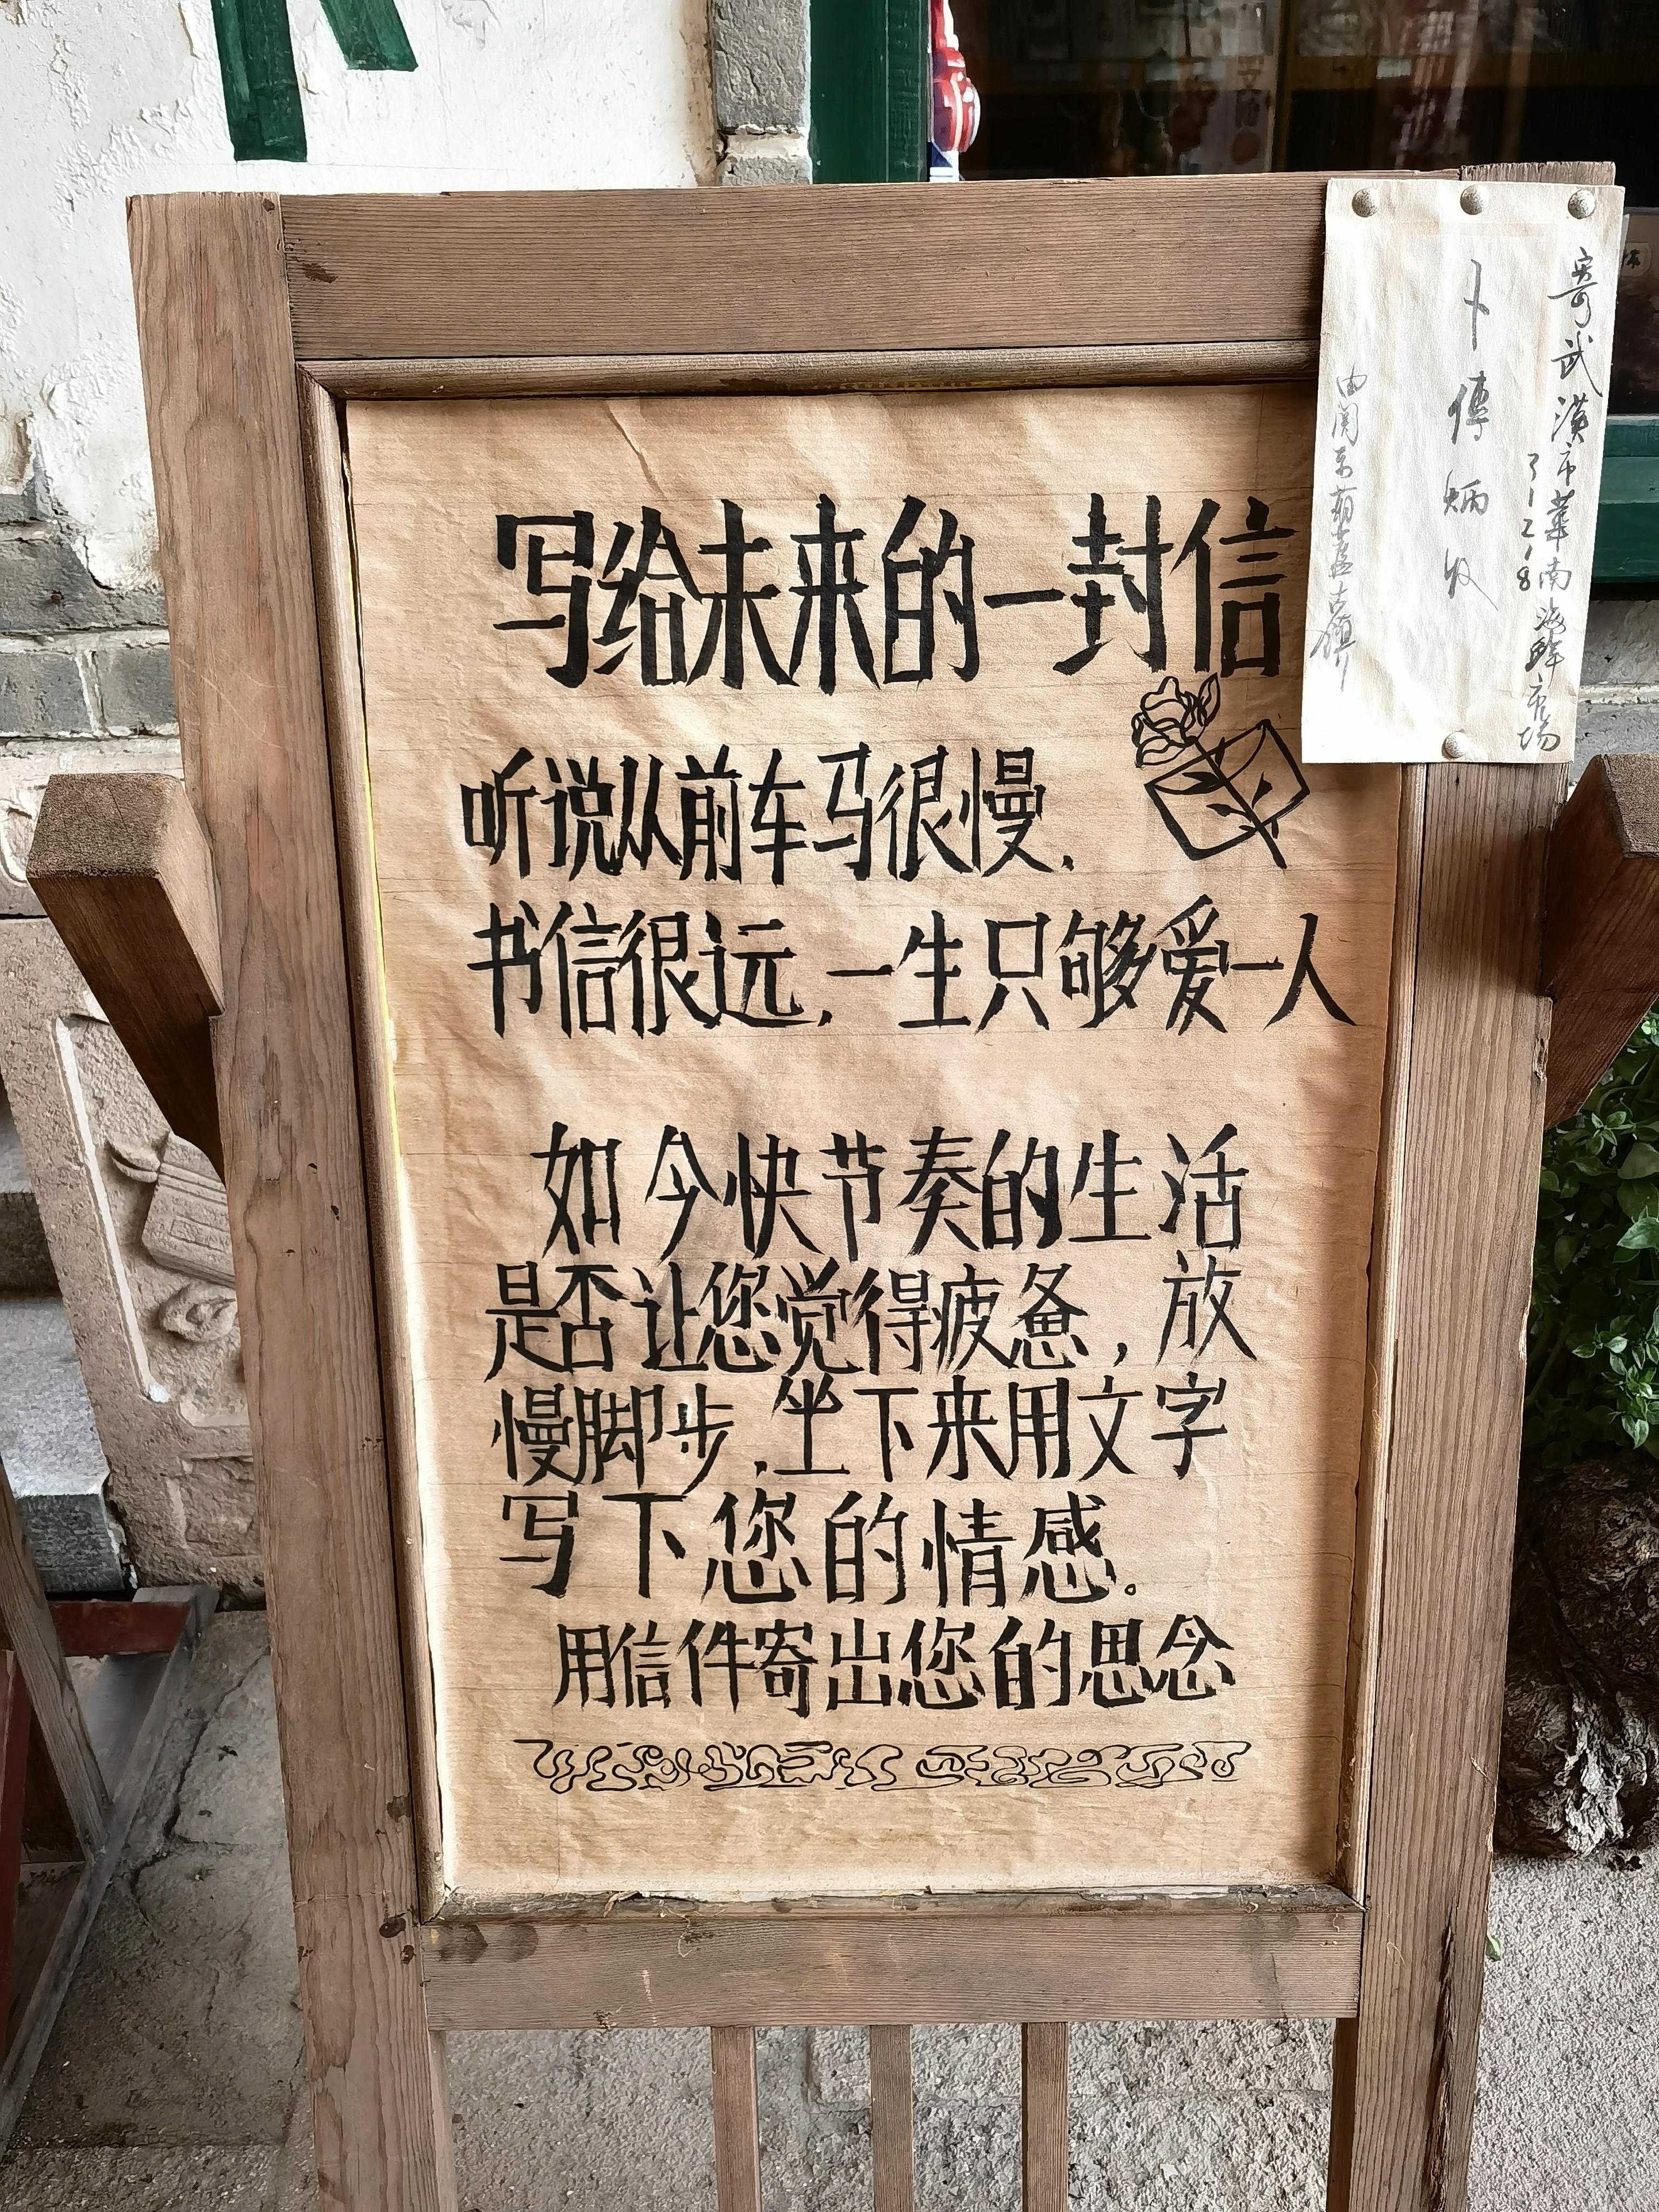 写给未来的一封信
听说从前车马很慢，
书信很远，一生只够爱一人
如今快节奏的生活
是否让您觉得疲惫，放
慢脚步，坐下来用文字
写下您的情感。
用信件寄出您的思念
寄武漢市華南海鲜市场
卜傳炳收